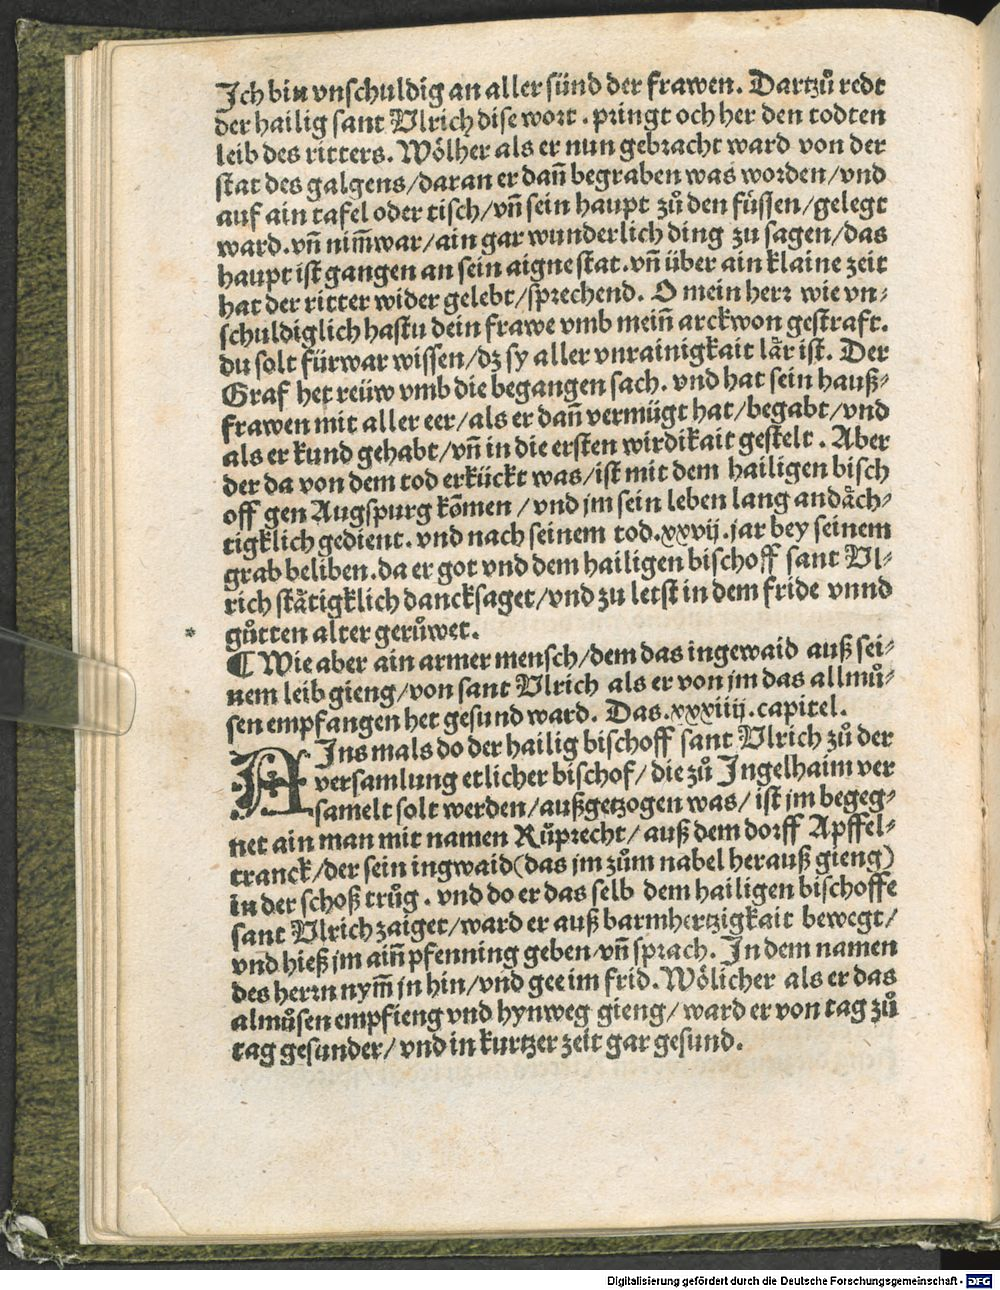 Ich bin vnschuldig an aller sünd der frawen. Dartzů redt
der hailig sant Vlrich dise wort. pringt och her den todten
leib des ritters. Wölher als er nun gebracht ward von der
stat des galgens/daran er dañ begraben was worden/vnd
auf ain tafel oder tisch/vñ sein haupt zů den füssen/gelegt
ward.vñ nim̃war/ain gar wunderlich ding zu sagen/das
haupt ist gangen an sein aigne stat.vñ über ain klaine zeit
hat der ritter wider gelebt/sprechend. O mein herr wie vn⸗
schuldiglich hastu dein frawe vmb meiñ arckwon gestraft.
du solt fürwar wissen/dz sy aller vnrainigkait lår ist. Der
Graf het reüw vmb die begangen sach. vnd hat sein hauß⸗
frawen mit aller eer/als er dañ vermügt hat/begabt/vnd
als er kund gehabt/vñ in die ersten wirdikait gestelt. Aber
der da von dem tod erkückt was/ist mit dem hailigen bisch
off gen Augspurg kom̃en/vnd jm sein leben lang andåch⸗
tigklich gedient.vnd nach seinem tod.xxvij.jar bey seinem
grab beliben.da er got vnd dem hailigen bischoff sant Vl⸗
rich ståtigklich dancksaget/vnd zu letst in dem fride vnnd
gůtten alter gerůwet.
¶ Wie aber ain armer mensch/dem das ingewaid auß sei⸗
nem leib gieng/von sant Vlrich als er von jm das allmů⸗
sen empfangen het gesund ward. Das.xxxiiij.capitel.
AIns mals do der hailig bischoff sant Vlrich zů der
versamlung etlicher bischof/die zů Ingelhaim ver
samelt solt werden/außgetzogen was/ist jm begeg⸗
net ain man mit namen Růprecht/auß dem dorff Apffel⸗
tranck/der sein ingwaid(das jm zům nabel herauß gieng)
in der schoß trůg. vnd do er das selb dem hailigen bischoffe
sant Vlrich zaiget/ward er auß barmhertzigkait bewegt/
vnd hieß jm aiñ pfenning geben/vñ sprach. In dem namen
des herrn nym̃ jn hin/vnd gee im frid. Wölicher als er das
almůsen empfieng vnd hynweg gieng/ward er von tag zů
tag gesunder/vnd in kurtzer zeit gar gesund.
Digitalisierung gefördert durch die Deutsche Forschungsgemeinschaft - DFG